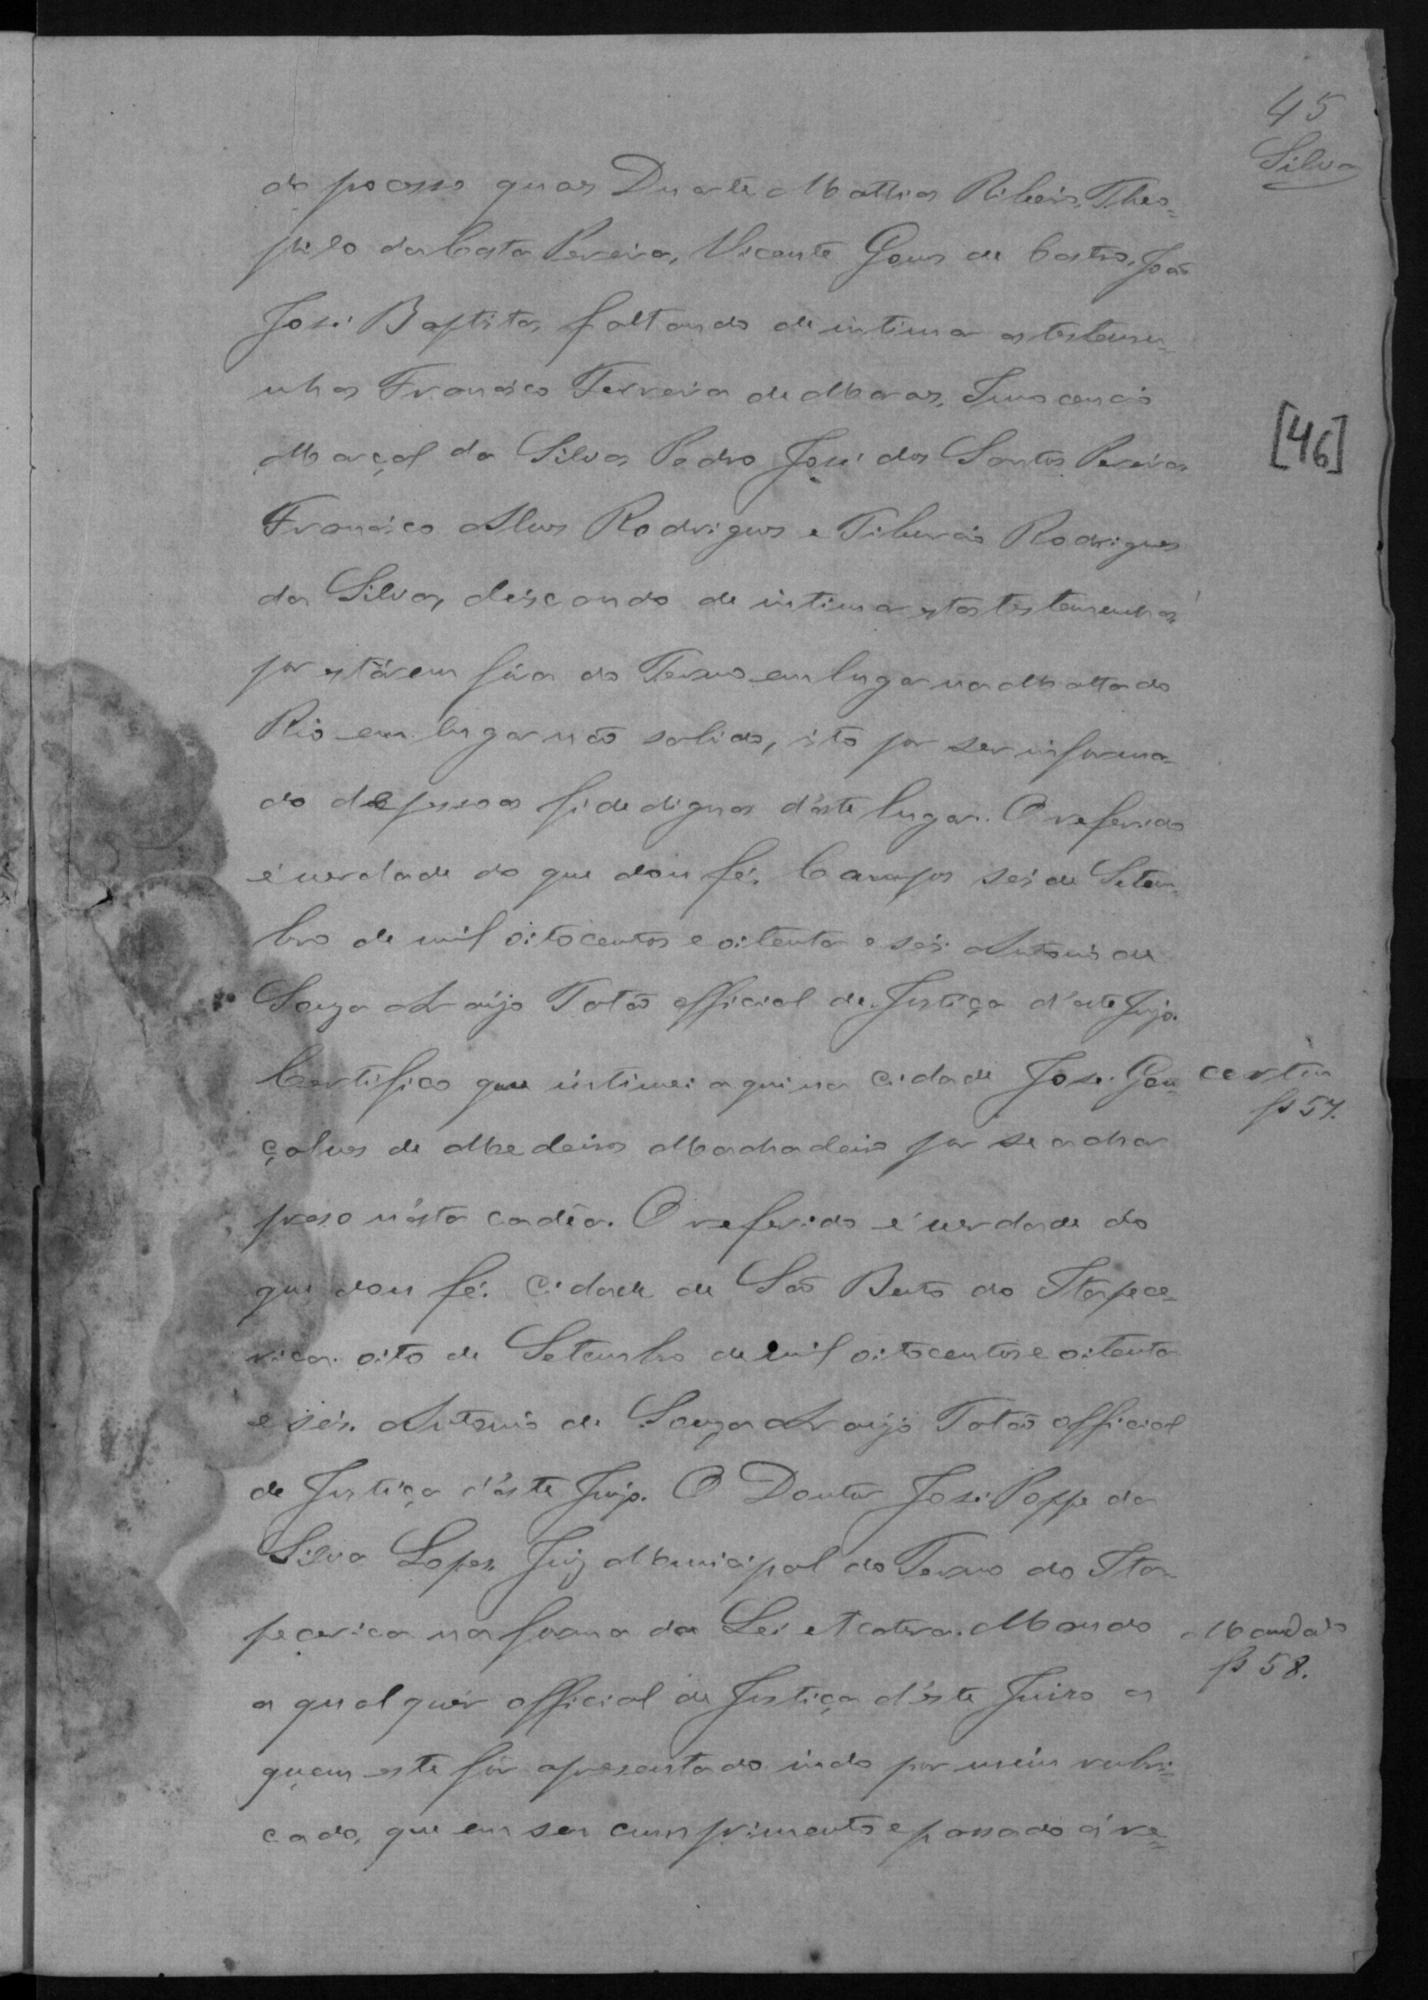 45
Silva
do pocesso quaes Duarte Mathias Ribeiro, Theo=
philo da Costa Pereira, Vicente Gomes de Castro, João
José Baptista, faltando de intimar as testemu=
nhas Francisco Ferreira de Moraes, Innocencio
Marçal da Silva Pedro José dos Santos Pereira
Francisco Alves Rodrigues e Tiburcio Rodrigues
da Silva, deixando de intimar estas testemunhas
por estárem fóra do Termo em lugar na Matta do
Rio em lugar não sabido, isto por ser informa=
do de pessoas fidedignas d'éste lugar. O referido
é verdade do que dou fé. Campos seis de Setem=
bro de mil oitocentos e oitenta e seis. Antonio de
Souza Araújo Totão official de Justiça d'este Juizo.
Certifico que intimei aqui na cidade José Gon=
çalves de Medeiros Machadeiro por se achar
preso n'ésta cadêa. O referido é verdade do
que dou fé. Cidade de São Bento do Itapece=
rica oito de Setembro de mil oitocentos e oitenta
e seis. Antonio de Souza Araújo Totão official
de Justiça d'éste Juizo. O Doutor José Poppe da
Silva Lopes, Juiz Municipal do Termo do Ita
pecerica na forma da Lei etcatera. Mando
a qualquér official de Justiça d'éste Juizo a
quem este fôr apresentado indo por mim rubri=
cado, que em seu cumprimento e passado á re=
[46]
certão
fs 57.
Mandado
fs 58.